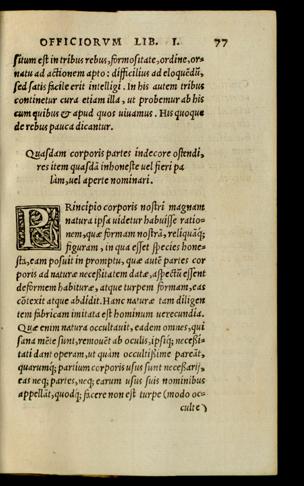 OFFICIORVM LIB. I. 77
situm est in tribus rebus, formositate, ordine, or-
natu ad actionem apto: difficilius ad eloquēdū,
sed satis facile erit intelligi. In his autem tribus
continetur cura etiam illa, ut probemur ab his
cum quibus & apud quos uiuamus. His quoque
de rebus pauca dicantur.
Quasdam corporis partes indecore ostendi,
res item quasdā inhoneste uel fieri pa
làm, uel aperte nominari.
PRincipio corporis nostri magnam
natura ipsa uidetur habuisse ratio-
nem, quæ formam nostrā, reliquāq;
figuram, in qua esset species hone-
sta, eam posuit in promptu, quæ autē partes cor
poris ad naturæ necessitatem datæ, aspectū essent
deformem habituræ, atque turpem formam, eas
cōtexit atque abdidit. Hanc naturæ tam diligen
tem fabricam imitata est hominum uerecundia.
Quæ enim natura occultauit, eadem omnes, qui
sana mēte sunt, remouēt ab oculis, ipsiq; necessi-
tati dant operam, ut quàm occultissime pareāt,
quarumq; partium corporis usus sunt necessarij,
eas neq; partes, neq; earum usus suis nominibus
appellāt, quodq; facere non est turpe (modo oc-
culte)